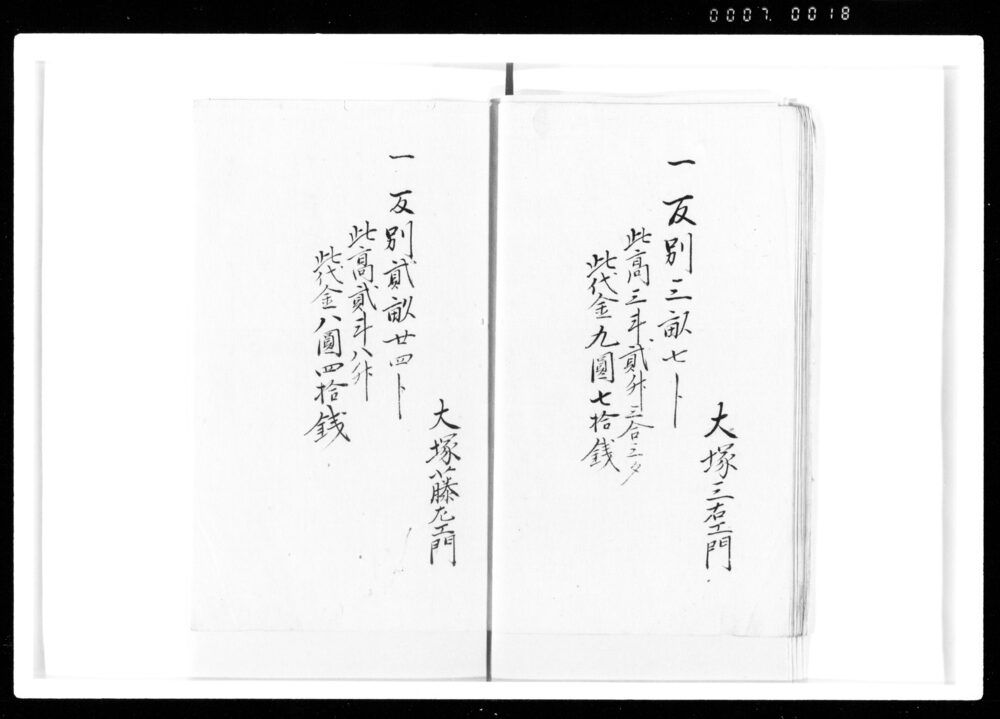 0007.0018
大塚三右エ門
一反別三畝七ト
此高三斗貳升三合三夕
此代金九圓七拾銭
大塚藤左エ門
一反別貳畝廿四ト
此高貳斗八升
此代金八圓四拾銭